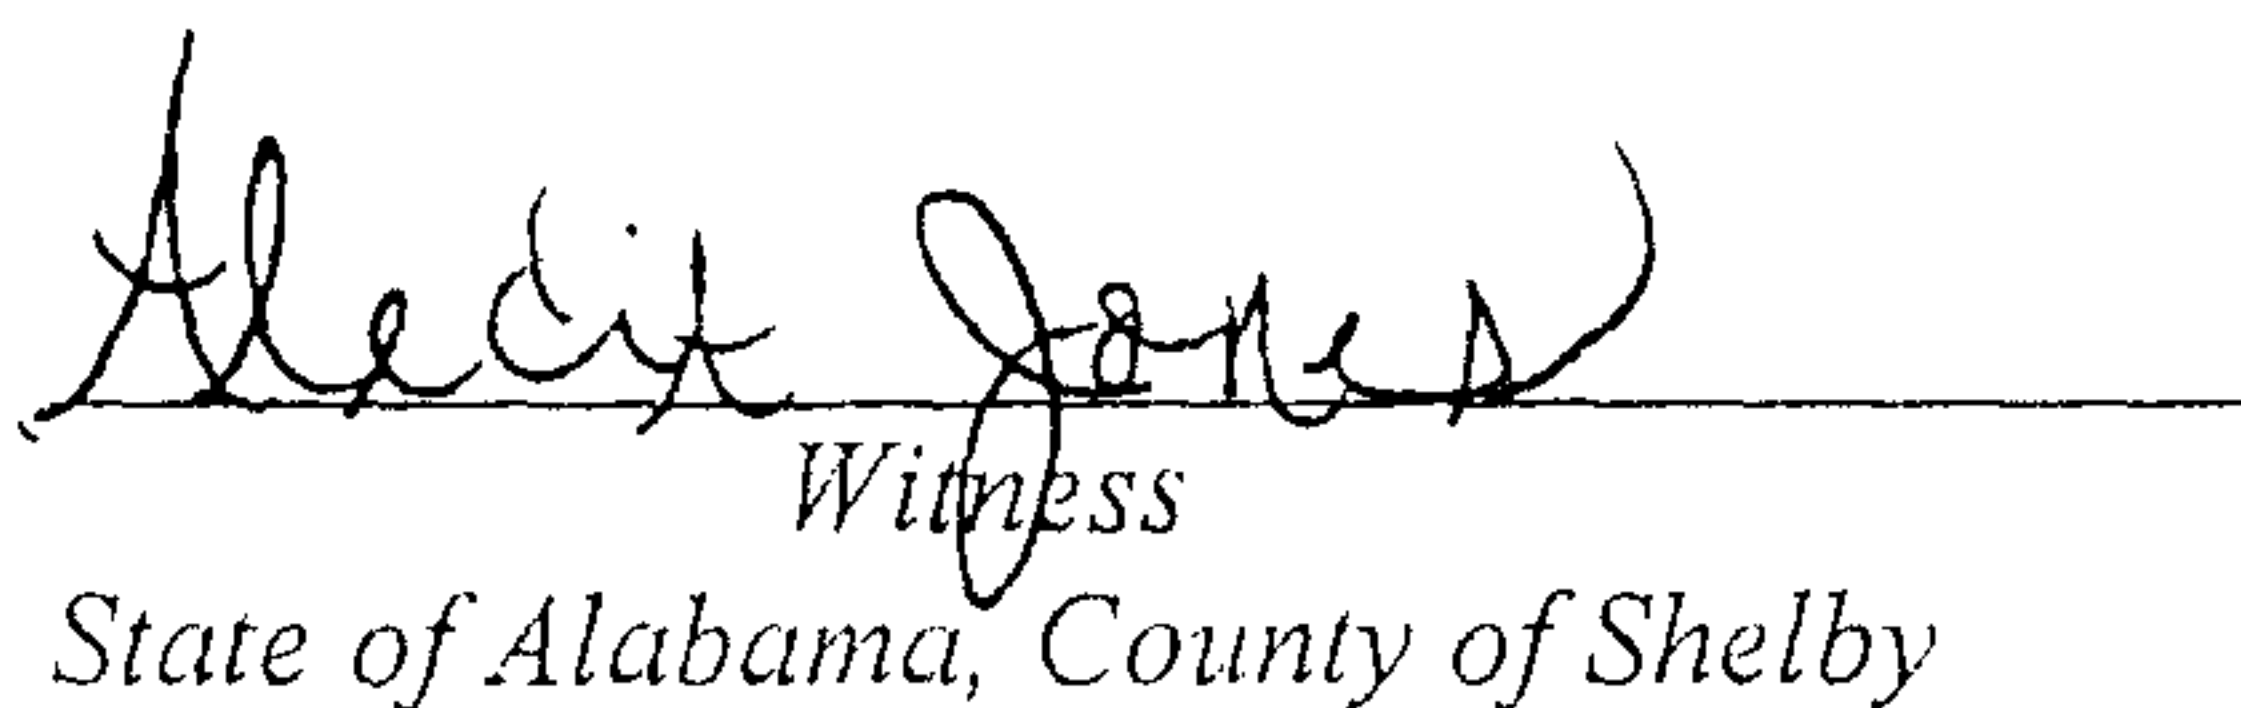 Alecia Jones
Witness
State of Alabama, County of Shelby